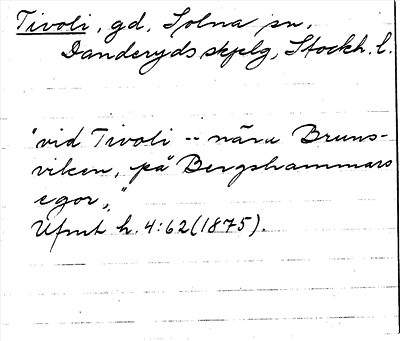 Tivoli, gd, Solna sn,
Danderyds skplg, Stockh. l.
"vid Tivoli -- nära Bruns-
viken, på Bergshammars
egor,"
Ufmt h. 4:62 (1875).